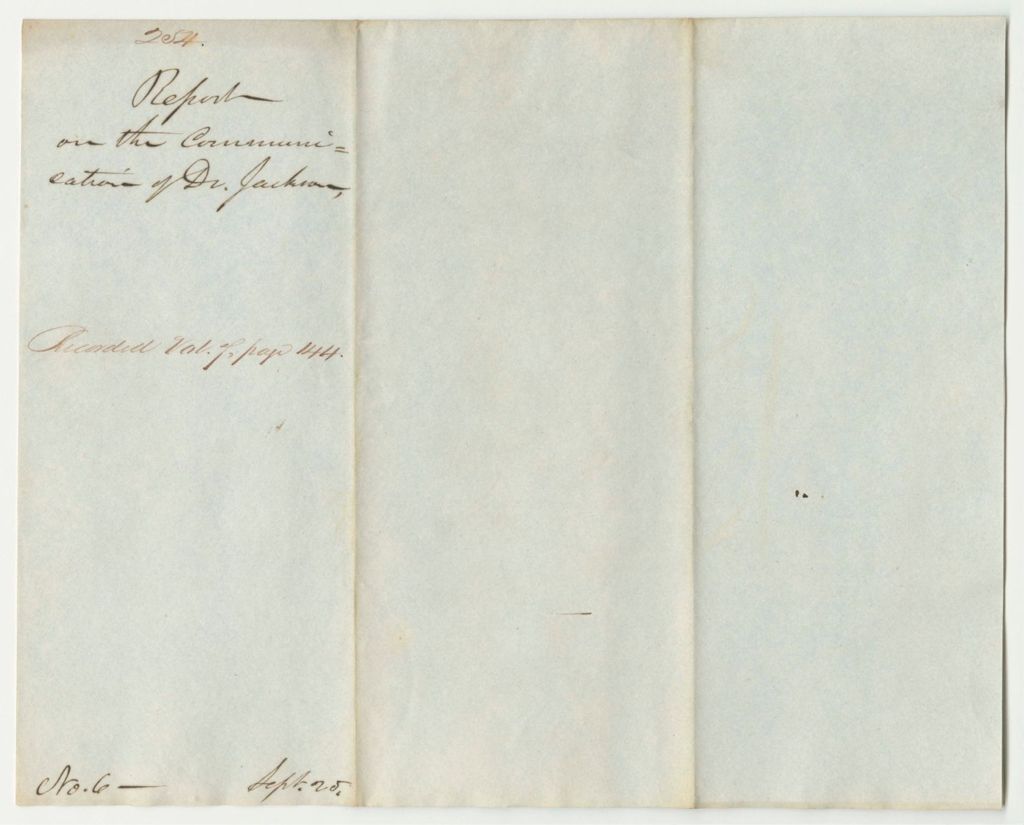 254.
Report
on the Communi=
cation of Dr. Jackson,
Recorded Vol. 7, page 144.
No. 6 — Sept. 25.